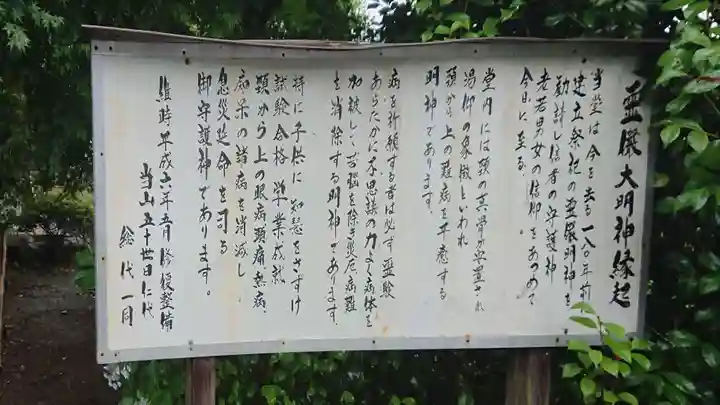 霊儼大明神縁起
当堂は今を去る一八〇年前
建立祭祀の霊儼明神を
勧請し信者の守護神
老若男女の信仰をあつめて
今日に至る。
堂内には頭の
安置され
渇仰の象徴といわれ
頭から上の難病を平癒する
明神であります。
病を祈願する者は必ず霊験
あらたかに不思議の力よく病体を
加被し、苦悩を除き災厄病難
を消除する明神であります。
特に子供に知慧をさずけ
試験合格、学業成就
頭から上の眼病頭痛熱病
痴呆の諸病を消滅し
息災延命を司る
御守護神であります。
維時平成六年五月修復整備
当山五十世日仁代
総代一同